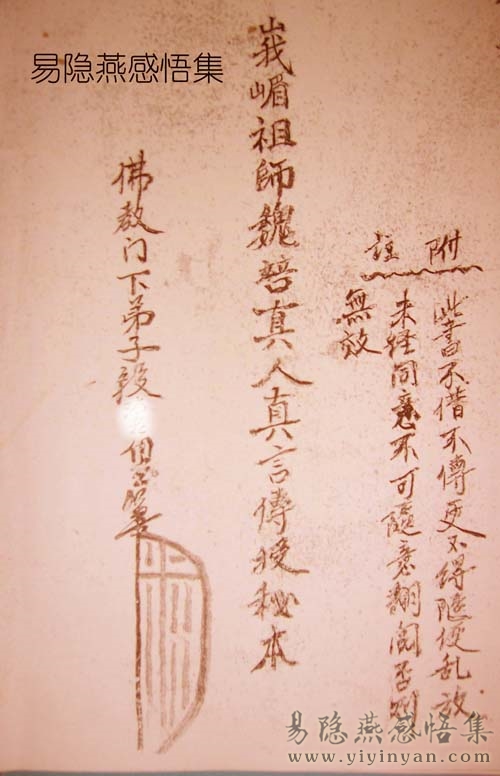 易隐燕感悟集
附註
此書不借不傳更不得隨便乱放
未经同意不可隨意翻阅否则
無效
峩嵋祖師魏晉真人真言傳授秘本
佛教门下弟子段
易隐燕感悟集
www.yiyinyan.com